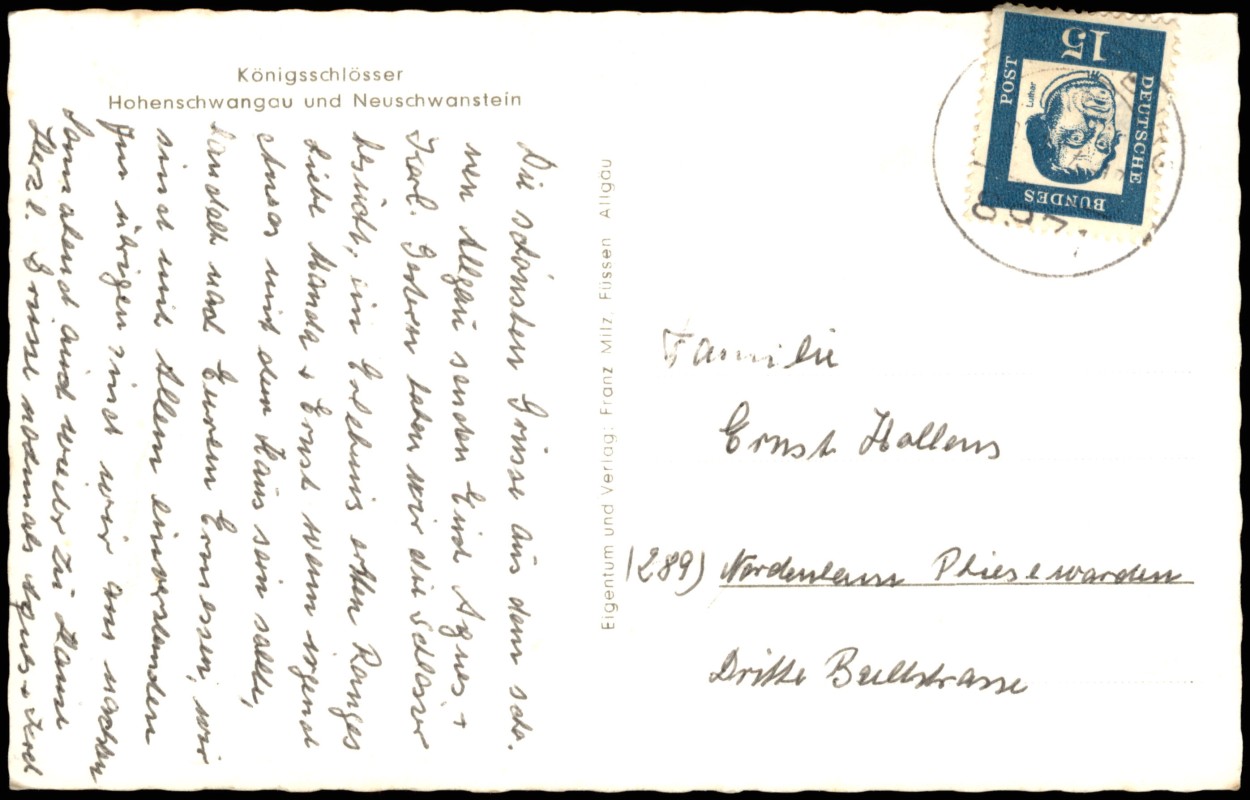 Königsschlösser
Hohenschwangau und Neuschwanstein
Die schönsten Grüsse aus dem schö.
nen Allgäu senden Euch Agnes, +
Karl. Gestern haben wir die Schlösser
besucht, ein Erlebnis ersten Ranges
Liebe Manda + Ernst wenn irgend
etwas mit dem Haus sein sollte,
handelt nach Eurem Ermessen, wir
sind mit Allem einverstanden
Im übrigen sind wir am nächsten
Sonnabend auch wieder zu Hause
Herzl. Grüsse nochmals Agnes + Karl
Eigentum und Verlag: Franz Milz, Füssen Allgäu
DEUTSCHE
BUNDES
POST
15
Luther
Familie
Ernst Hollens
(289) Nordenham Phiesewarden
Dritte Bultstrasse